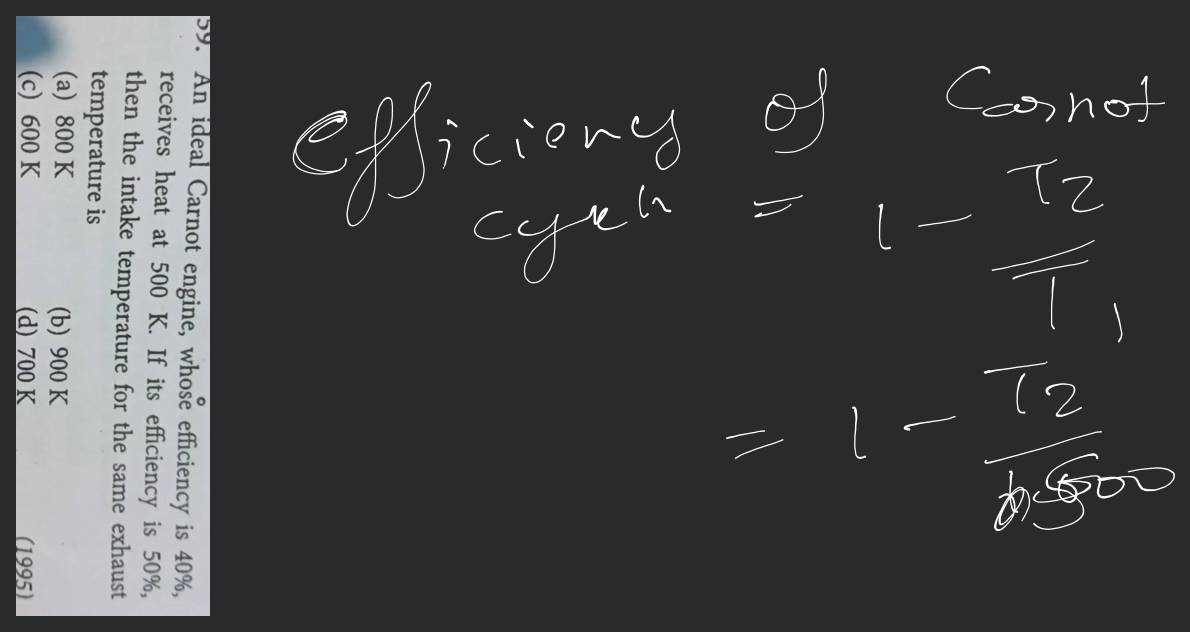 59. An ideal Carnot engine, whose efficiency is 40%,
receives heat at 500 K. If its efficiency is 50%,
then the intake temperature for the same exhaust
temperature is
(a) 800 K (b) 900 K
(c) 600 K (d) 700 K (1995)
efficieny of Carnot
= 1 - T2
T1
= 1 - T2
500